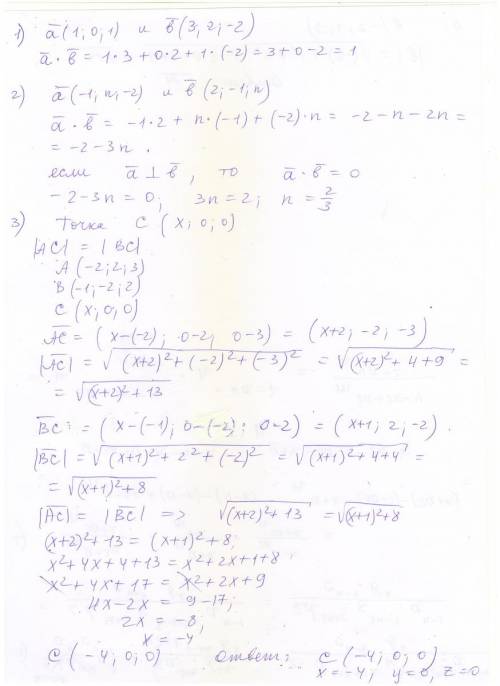 1) a̅(1; 0; 1) и b̅(3; 2; -2)
a̅ · b̅ = 1·3 + 0·2 + 1·(-2) = 3 + 0 - 2 = 1
2) a̅(-1; n; -2) и b̅(2; -1; n)
a̅ · b̅ = -1·2 + n·(-1) + (-2)·n = -2 - n - 2n =
= -2 - 3n .
если a̅ ⊥ b̅, то a̅ · b̅ = 0
-2 - 3n = 0; 3n = 2; n = 2/3
3) Точка C (x; 0; 0)
|AC| = |BC|
A (-2; 2; 3)
B (-1; -2; 2)
C (x; 0; 0)
A̅C̅ = (x-(-2); 0-2; 0-3) = (x+2; -2; -3)
|A̅C̅| = √((x+2)² + (-2)² + (-3)²) = √((x+2)² + 4 + 9) =
= √((x+2)² + 13)
B̅C̅ = (x-(-1); 0-(-2); 0-2) = (x+1; 2; -2).
|B̅C̅| = √((x+1)² + 2² + (-2)²) = √((x+1)² + 4 + 4) =
= √((x+1)² + 8)
|A̅C̅| = |B̅C̅| => √((x+2)² + 13) = √((x+1)² + 8)
(x+2)² + 13 = (x+1)² + 8;
x² + 4x + 4 + 13 = x² + 2x + 1 + 8
x² + 4x + 17 = x² + 2x + 9
4x - 2x = 9 - 17;
2x = -8;
x = -4
C (-4; 0; 0) ответ: C (-4; 0; 0)
x = -4; y = 0, z = 0